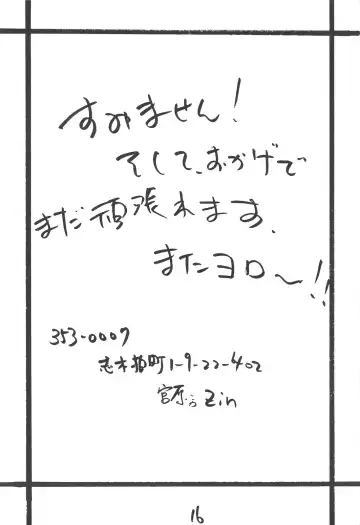 すみません!
そして、おかげで
まだ頑張れます。
またヨロ〜!!
353-0007
志木柏町1-9-22-402
宮原方 Zin
16